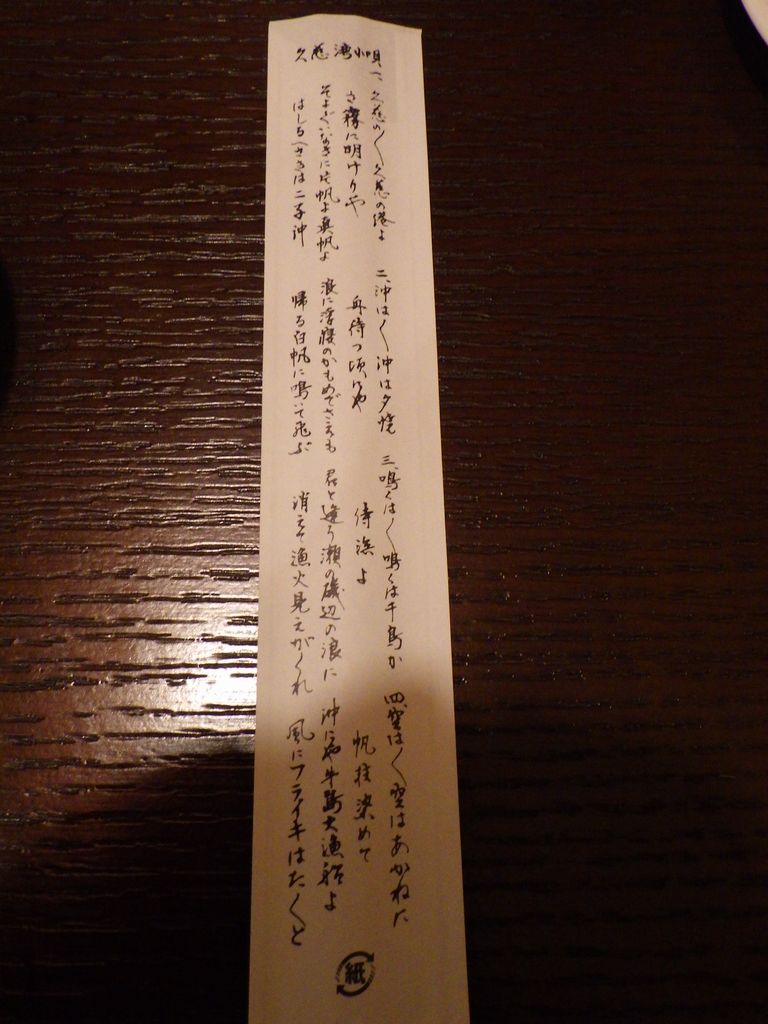 久慈湾小唄
一、久慈の〱久慈の港よ
さ霧に明けりや
そよぐいなさに片帆よ真帆よ
はしるへさきは二子沖
二、沖は〱沖は夕焼
舟待つ頃にや
浪に浮寝のかもめでさえも
帰る白帆に鳴いて飛ぶ
三、鳴くは〱鳴くは千鳥か
侍浜よ
君と逢う瀬の磯辺の浪に
消えて漁火見えがくれ
四、空は〱空はあかねだ
帆柱染めて
沖にや牛島大漁船よ
風にフライキはた〱と
紙